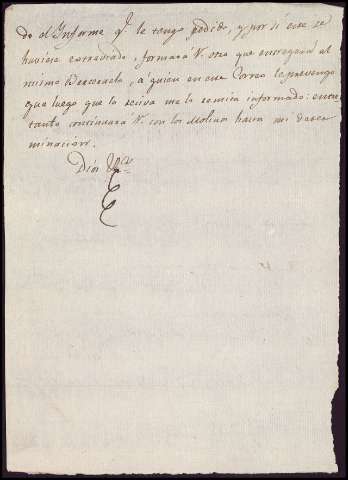 do el Informe q.e le tengo pedido, y por si este se
huviese extraviado, formará V. otro que entregará al
mismo à quien en este Correo lo prevengo
que luego que lo reciva me lo remita informado: entre
tanto continuará V. con los Molinos hasta mi deter
minacion.
Dios &.a